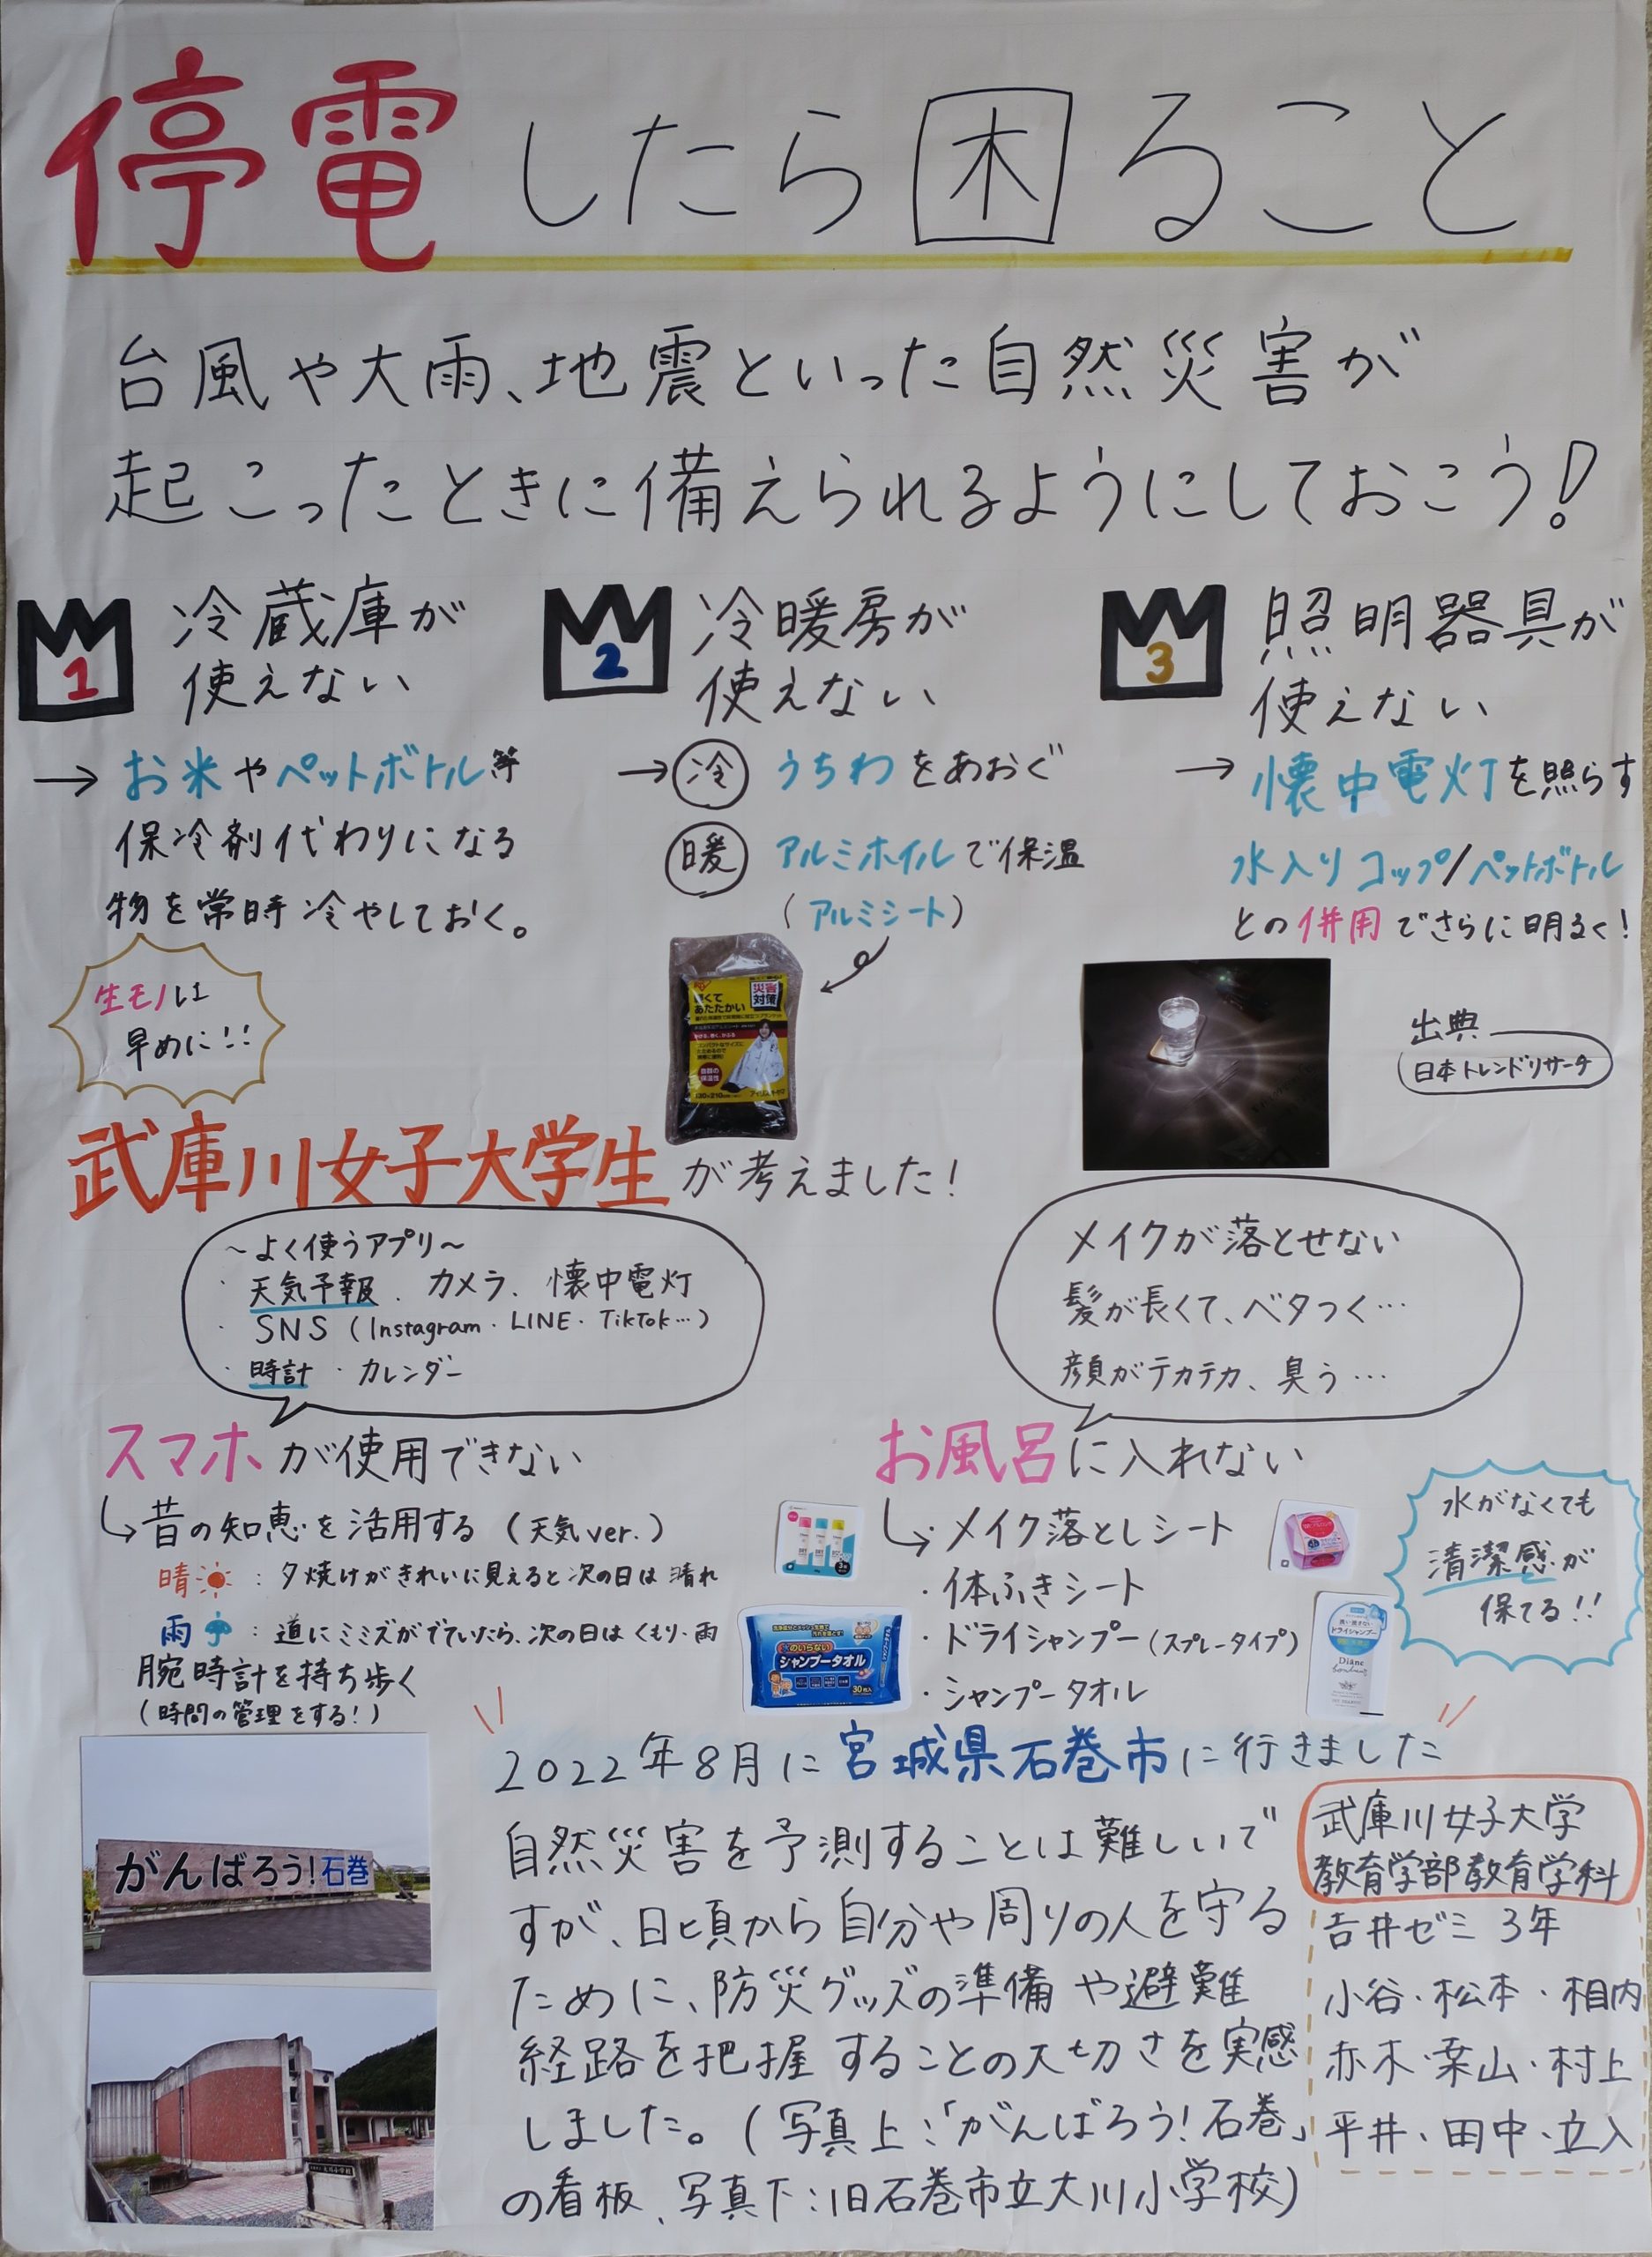 停電したら困ること
台風や大雨、地震といった自然災害が
起こったときに備えられるようにしておこう!
1 冷蔵庫が
使えない
→ お米やペットボトル等
保冷剤代わりになる
物を常時冷やしておく。
生モノは
早めに!!
2 冷暖房が
使えない
→ 冷 うちわをあおぐ
暖 アルミホイルで保温
(アルミシート)
災害
対策
軽くて
あたたかい
3 照明器具が
使えない
→ 懐中電灯を照らす
水入りコップ/ペットボトル
との併用でさらに明るく!
出典
日本トレンドリサーチ
武庫川女子大学生が考えました!
~よく使うアプリ~
・天気予報、カメラ、懐中電灯
・SNS(Instagram・LINE・TikTok…)
・時計・カレンダー
スマホが使用できない
↳昔の知恵を活用する(天気ver.)
晴:夕焼けがきれいに見えると次の日は晴れ
雨:道にミミズがでていたら、次の日はくもり・雨
腕時計を持ち歩く
(時間の管理をする!)
メイクが落とせない
髪が長くて、ベタつく…
顔がテカテカ、臭う…
お風呂に入れない
↳・メイク落としシート
・体ふきシート
・ドライシャンプー(スプレータイプ)
・シャンプータオル
水のいらない
シャンプータオル
30枚入
ドライシャンプー
Diane
水がなくても
清潔感が
保てる!!
2022年8月に宮城県石巻市に行きました
自然災害を予測することは難しいで
すが、日頃から自分や周りの人を守る
ために、防災グッズの準備や避難
経路を把握することの大切さを実感
しました。(写真上:「がんばろう!石巻」
の看板、写真下:旧石巻市立大川小学校)
がんばろう!石巻
武庫川女子大学
教育学部教育学科
吉井ゼミ 3年
小谷・松本・相内
赤木・葉山・村上
平井・田中・立入